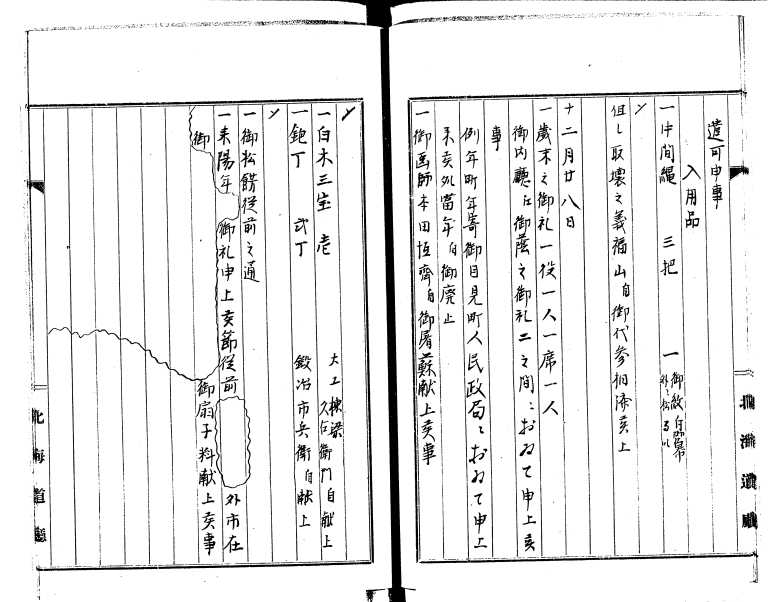 道可申事
入用品
一 中間縄 三把 一 御紋白幕
外ニ松弓以
〃 但し取壊之義福山自御代参相添候上
十二月廿八日
一 歳末之御礼一役一人一席一人
御内廳江御蔭之御礼二之間ニおゐて申上候
事
例年町年寄御目見町人民政局ニおゐて申上
来候処當年自御廃止
一 御画師本田恒齋自御屠蘇献上候事
〃
一 白木三宝 壱 大工棟梁
久右衛門自献上
一 鉋丁 弐丁 鍛冶市兵衛自献上
〃
一 御松餝従前之通
一 来陽年 御礼申上候節従前 外市在
御 御扇子料献上候事
北海道廳
北海道廳